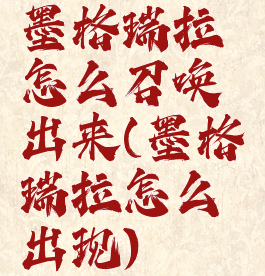 墨格瑞拉
怎么召唤
出来(墨格
瑞拉怎么
出现)